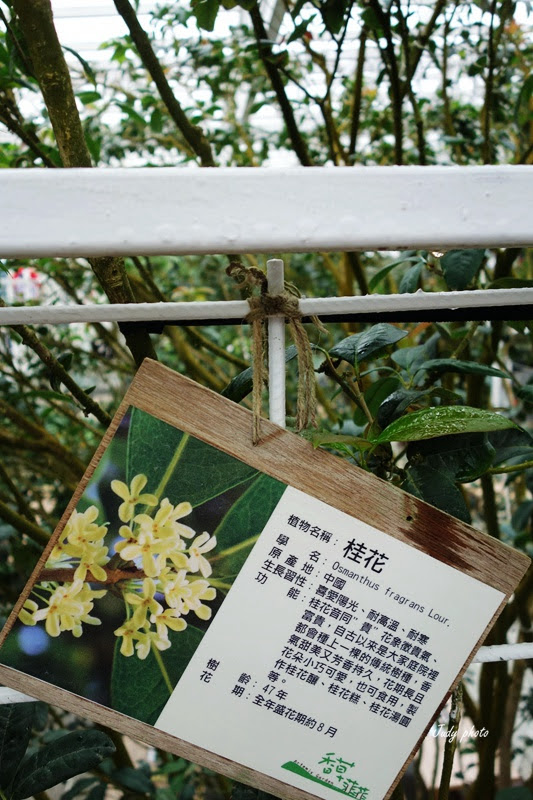 植物名稱：桂花
學名：Osmanthus fragrans Lour.
原產地：中國
生長習性：喜愛陽光、耐高溫、耐寒
功能：桂花音同"貴"花象徵貴氣、
富貴，自古以來是大家庭院裡
都會種上一棵的傳統樹種，香
氣甜美又芳香持久，花期長且
花朵小巧可愛，也可食用，製
作桂花釀、桂花糕、桂花湯圓
等。
樹齡：47年
花期：全年盛花期約8月
香草菲菲
Judy photo